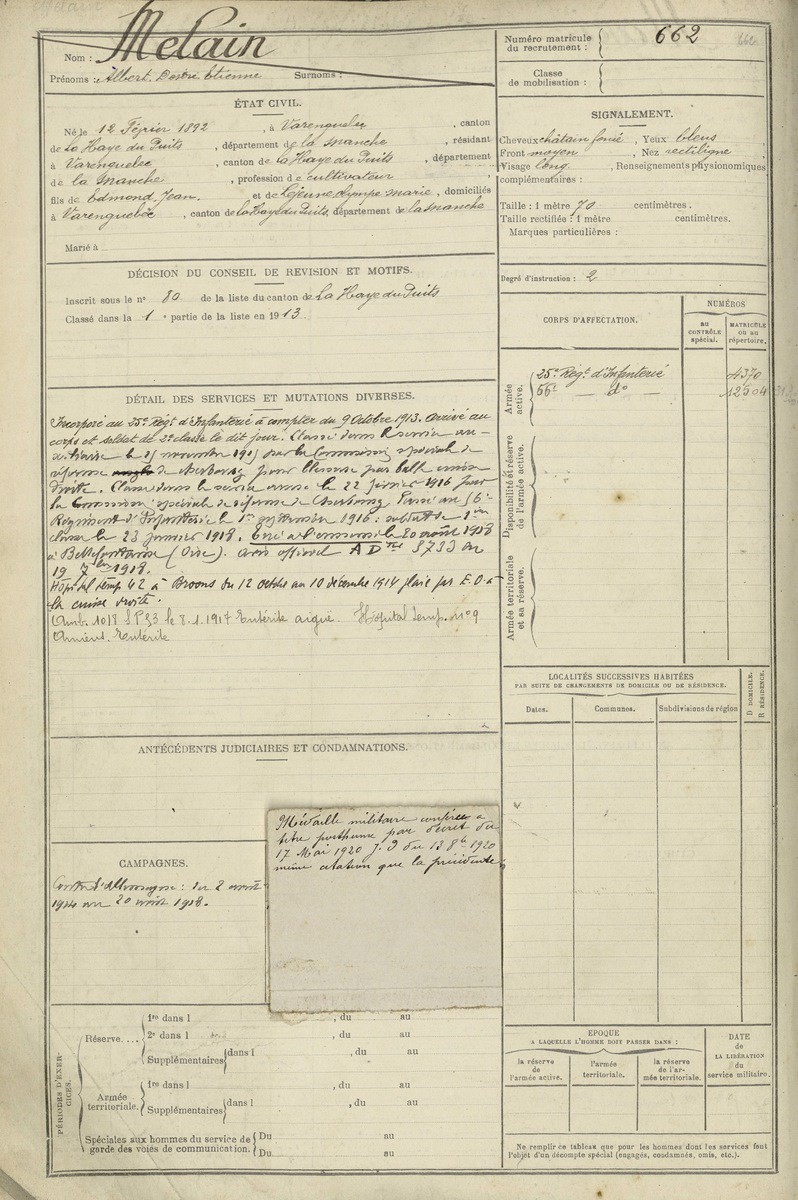 Nom : Melain
Prénoms : Albert Désiré Etienne Surnoms :
Numéro matricule du recrutement : 662
Classe de mobilisation :
ÉTAT CIVIL.
Né le 12 Février 1892, à Varenguebec, canton
de La Haye du Puits, département de la Manche, résidant
à Varenguebec, canton de La Haye du Puits, département
de la Manche, profession de cultivateur,
fils de Edmond Jean. et de Lejeune Olympe Marie, domiciliés
à Varenguebec, canton de La Haye du Puits, département de la Manche
Marié à
DÉCISION DU CONSEIL DE REVISION ET MOTIFS.
Inscrit sous le n° 80 de la liste du canton de La Haye du Puits
Classé dans la 1e partie de la liste en 1913.
DÉTAIL DES SERVICES ET MUTATIONS DIVERSES.
Incorporé au 25e Régt d'Infanterie à compter du 9 Octobre 1913. Arrivé au
corps et soldat de 2e classe le dit jour. Classé dans le service au-
xiliaire le 25 novembre 1915 par la Commission spéciale de
réforme de Cherbourg pour blessure par balle cuisse
droite. Classé dans le service armé le 22 février 1916 par
la Commission spéciale de réforme de Cherbourg. Passé au 56e
Régiment d'Infanterie le 1er septembre 1916. soldat de 1ère
classe le 23 janvier 1918. Tué à l'ennemi le 20 août 1918
à Bellefontaine (Oise). avis officiel A D 5733 du
19 7bre 1918.
Hôpital temp. 42 à Broons du 12 octobre au 10 décembre 1914 plaie par E.O. à
la cuisse droite.
Amb. 10/8 S.P. 33 le 8.1.1917 Entérite aiguë. Hôpital temp. n° 9
Amiens. Entérite
ANTÉCÉDENTS JUDICIAIRES ET CONDAMNATIONS.
CAMPAGNES.
Contre l'Allemagne : du 2 août
1914 au 20 août 1918.
Médaille militaire conférée à
titre posthume par décret du
17 Mai 1920 J.O du 13 8bre 1920
même citation que la précédente
PÉRIODES D'EXERCICES.
Réserve.... 1re dans l , du au
2e dans l , du au
Supplémentaires dans l , du au
Armée territoriale. 1re dans l , du au
Supplémentaires dans l , du au
Spéciales aux hommes du service de garde des voies de communication. Du au
Du au
SIGNALEMENT.
Cheveux châtain foncé, Yeux bleus
Front moyen, Nez rectiligne,
Visage long, Renseignements physionomiques
complémentaires :
Taille : 1 mètre 70 centimètres.
Taille rectifiée : 1 mètre centimètres.
Marques particulières :
Degré d'instruction : 2
CORPS D'AFFECTATION.
NUMÉROS
au CONTRÔLE spécial.
MATRICULE ou au répertoire.
Armée active.
25e Régt d'Infanterie 4370
56e — do — 12504
Disponibilité et réserve de l'armée active.
Armée territoriale et sa réserve.
LOCALITÉS SUCCESSIVES HABITÉES
PAR SUITE DE CHANGEMENTS DE DOMICILE OU DE RÉSIDENCE.
Dates. Communes. Subdivisions de région
D DOMICILE.
R RÉSIDENCE.
EPOQUE
A LAQUELLE L'HOMME DOIT PASSER DANS :
la réserve de l'armée active.
l'armée territoriale.
la réserve de l'armée territoriale.
DATE
de
LA LIBÉRATION
du
service militaire.
Ne remplir ce tableau que pour les hommes dont les services font
l'objet d'un décompte spécial (engagés, condamnés, omis, etc.).